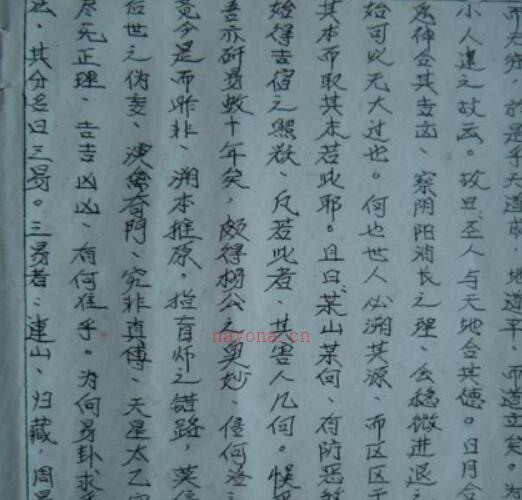 而无穷，於是乎天道成，地道平，而道立矣。为
小人逆之故凶。故曰圣人与天地合其德。日月合
鬼神合其吉凶、察阴阳消长之理、合穩微进退之
始可以无大过也。何也世人必溯其源、而区区于
其本而取其末若此耶。且曰某山某向、有防恶
始得吉宿之照欤、凡若此者、其害人几何。惧
吾亦研易数十年矣，颇得杨公之奥妙、
竟今是而昨非、溯本推原，指盲师之错路，莫信
后世之伪妄、演禽奇門、究非真傳、天星太乙
尽无正理、吉吉凶凶、有何准乎。为何易卦求
其分名曰三易。三易者、連山、归藏，周
nayona.cn